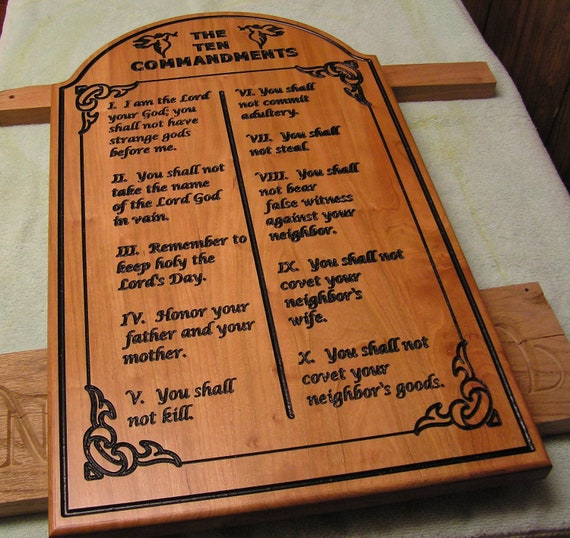 THE
TEN
COMMANDMENTS
I. I am the Lord
your God; you
shall not have
strange gods
before me.
II. You shall not
take the name
of the Lord God
in vain.
III. Remember to
keep holy the
Lord's Day.
IV. Honor your
father and your
mother.
V. You shall
not kill.
VI. You shall
not commit
adultery.
VII. You shall
not steal.
VIII. You shall
not bear
false witness
against your
neighbor.
IX. You shall not
covet your
neighbor's
wife.
X. You shall not
covet your
neighbor's goods.